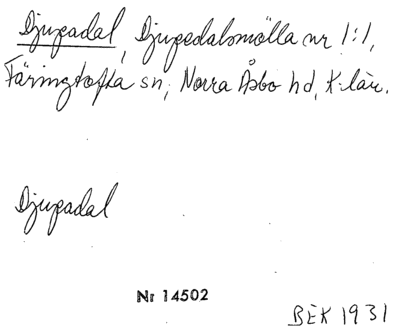 Djupadal, Djupedalsmölla nr 1:1,
Färingtofta sn, Norra Åsbo hd, K-län.
Djupadal
Nr 14502
BEK 1931